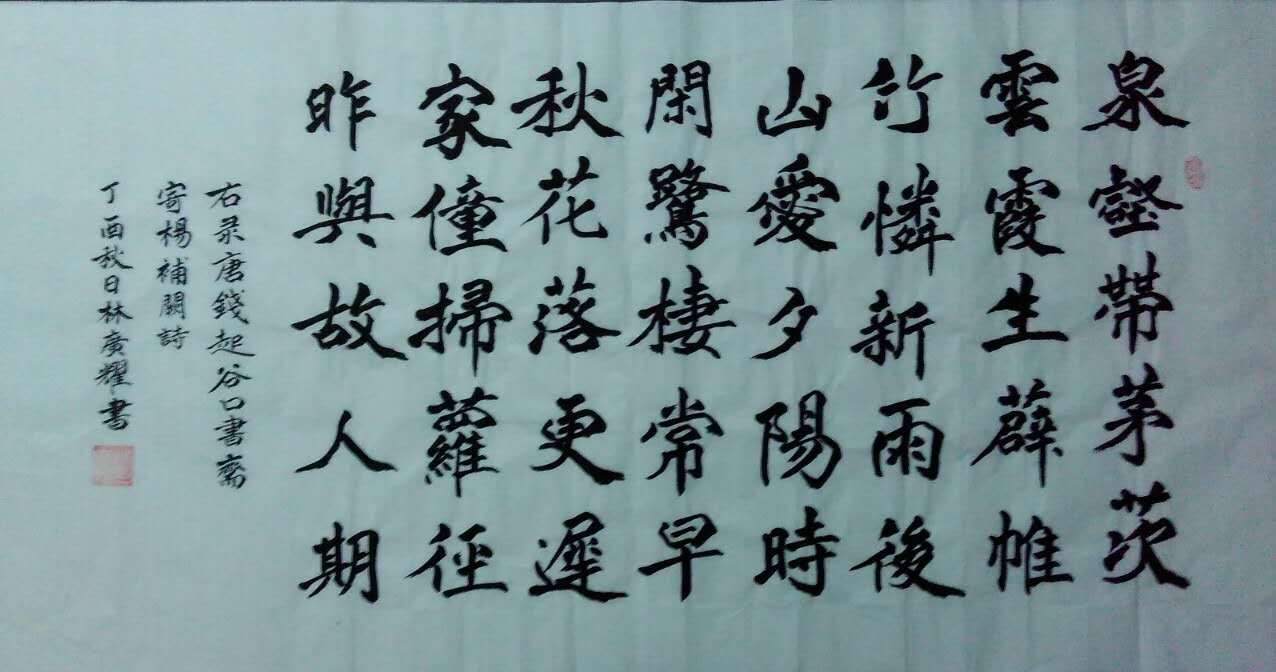 泉壑帶茅茨
雲霞生薜帷
竹憐新雨後
山愛夕陽時
閑鷺棲常早
秋花落更遲
家僮掃蘿徑
昨與故人期
右录唐錢起谷口書齋
寄楊補闕詩
丁酉秋日林廣耀書